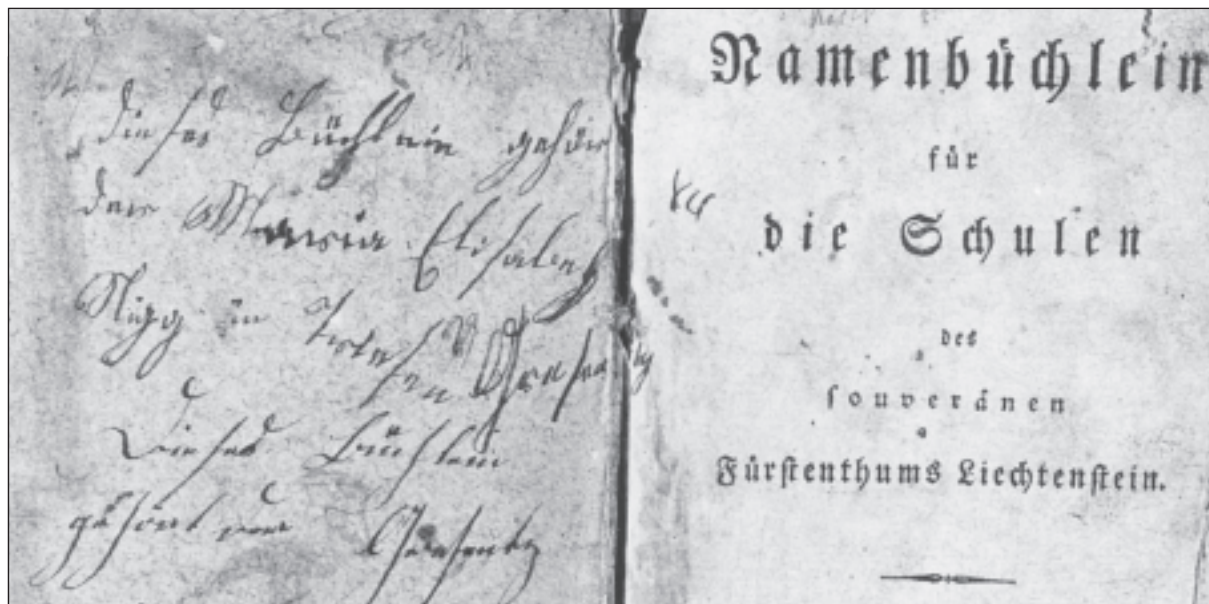 dieses Büchlein gehört
der Maria Elisabeth
Nigg in Triesen
Dieses Büchlein
gehört
Namenbüchlein
für
die Schulen
des
souveränen
Fürstenthums Liechtenstein.